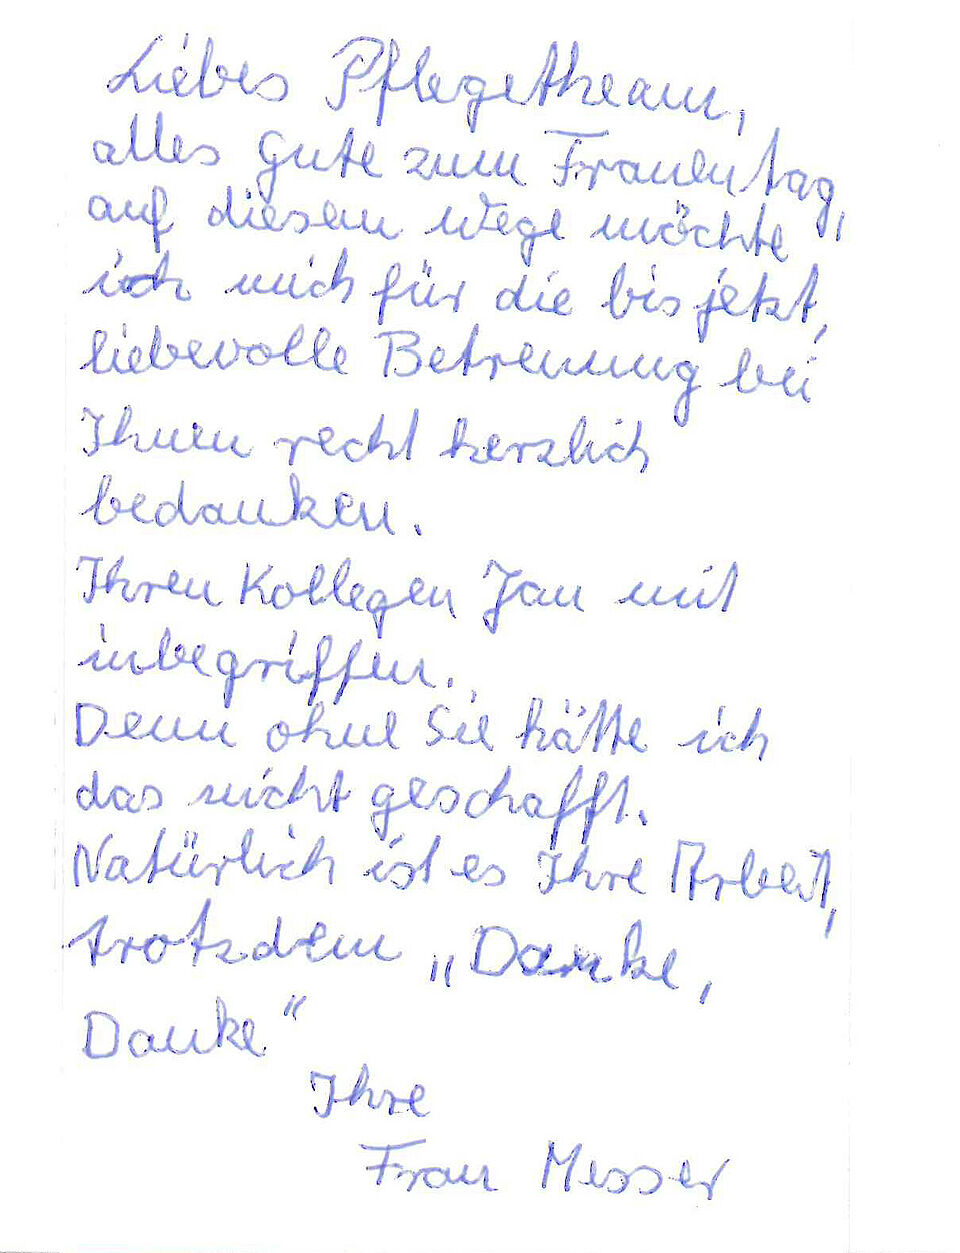 Liebes Pflegetheam,
alles gute zum Frauentag,
auf diesem Wege möchte
ich mich für die bis jetzt,
liebevolle Betreuung bei
Ihnen recht herzlich
bedanken.
Ihren Kollegen Jan mit
inbegriffen.
Denn ohne Sie hätte ich
das nicht geschafft.
Natürlich ist es Ihre Arbeit,
trotzdem „Danke,
Danke“
Ihre
Frau Messer